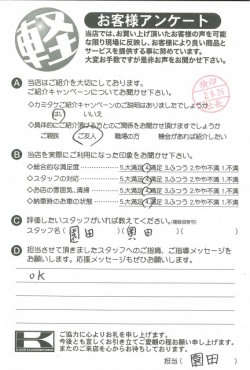 軽
お客様アンケート
当店では、お買い上げ頂いたお客様の声を可能
な限り現場に反映し、お客様により良い商品と
サービスを提供する事に努めています。
大変お手数ですが是非お声をお聞かせ下さい。
A 当店はご紹介を大切にしております。
ご紹介キャンペーンについてお聞かせ下さい。
◇カミタケご紹介キャンペーンのご説明はありましたでしょうか
はい いいえ
◇具体的にご紹介頂ける方とのご関係をお聞かせ頂けますでしょうか
ご親戚 ご友人 職場の方 機会があれば紹介したい
B 当店を実際にご利用になった印象をお聞かせ下さい。
◇総合的な満足度 5.大満足 4.満足 3.ふつう 2.やや不満 1.不満
◇スタッフの対応 5.大満足 4.満足 3.ふつう 2.やや不満 1.不満
◇お店の雰囲気、清掃 5.大満足 4.満足 3.ふつう 2.やや不満 1.不満
◇納車時のお車の状態 5.大満足 4.満足 3.ふつう 2.やや不満 1.不満
C 評価したいスタッフがいれば教えてください。(複数回答可)
スタッフ名( 園田 )( 奥田 )( )
D 担当させて頂きましたスタッフへのご指摘、ご指導メッセージを
お願いします。応援メッセージもぜひお願いします。
OK
K
ご協力に心よりお礼を申し上げます。
今後とも宜しくお引き立てご愛顧の程お願い申し上げます。
またのご来店を心からお待ちしております。
担当( 園田 )